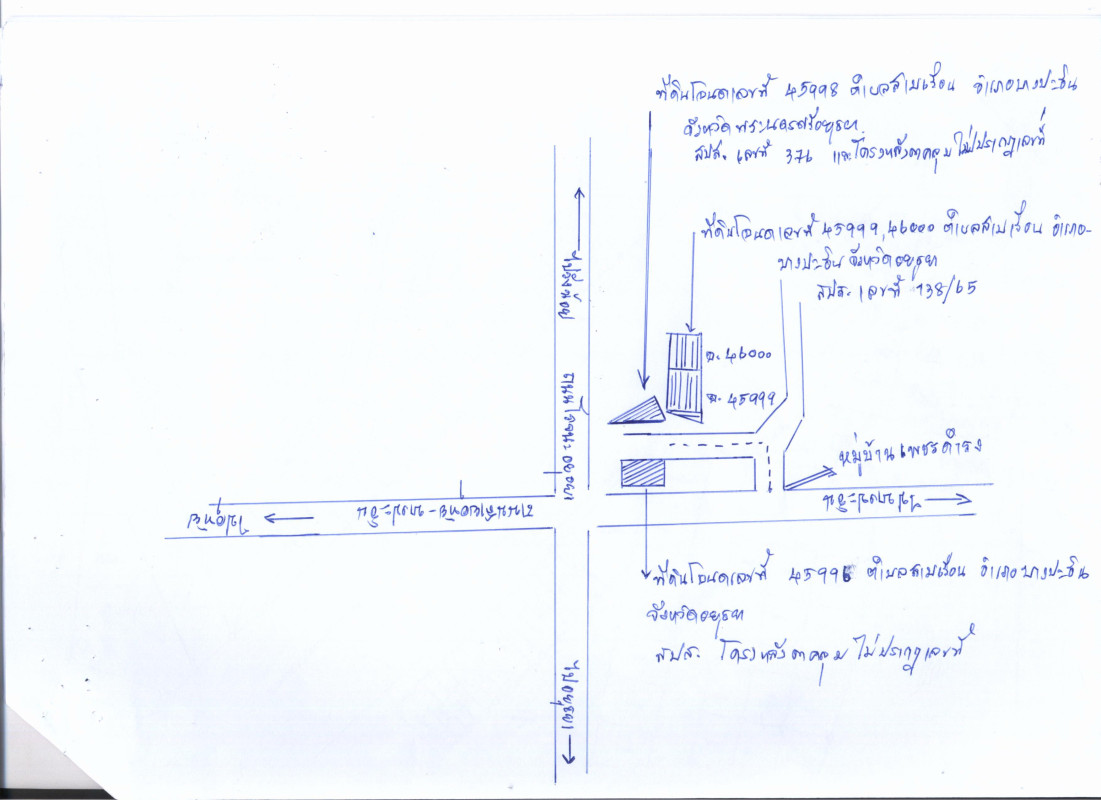 ที่ดินโฉนดเลขที่ 45998 ตำบลสามเรือน อำเภอบางปะอิน
จังหวัดพระนครศรีอยุธยา
สปส. เลขที่ 376 และโครงหลังคาคลุม ไม่ปรากฏเลขที่
ที่ดินโฉนดเลขที่ 45999,46000 ตำบลสามเรือน อำเภอ-
บางปะอิน จังหวัดอยุธยา
สปส. เลขที่ 138/65
ไปวังน้อย
ฉ. 46000
ฉ. 45999
ถนนโรจนะ
หมู่บ้านเพชรดำรง
ไปบางปะอิน
บางปะอิน
ที่ดินโฉนดเลขที่ 45996 ตำบลสามเรือน อำเภอบางปะอิน
จังหวัดอยุธยา
สปส. โครงหลังคาคลุม ไม่ปรากฏเลขที่
ไปอยุธยา